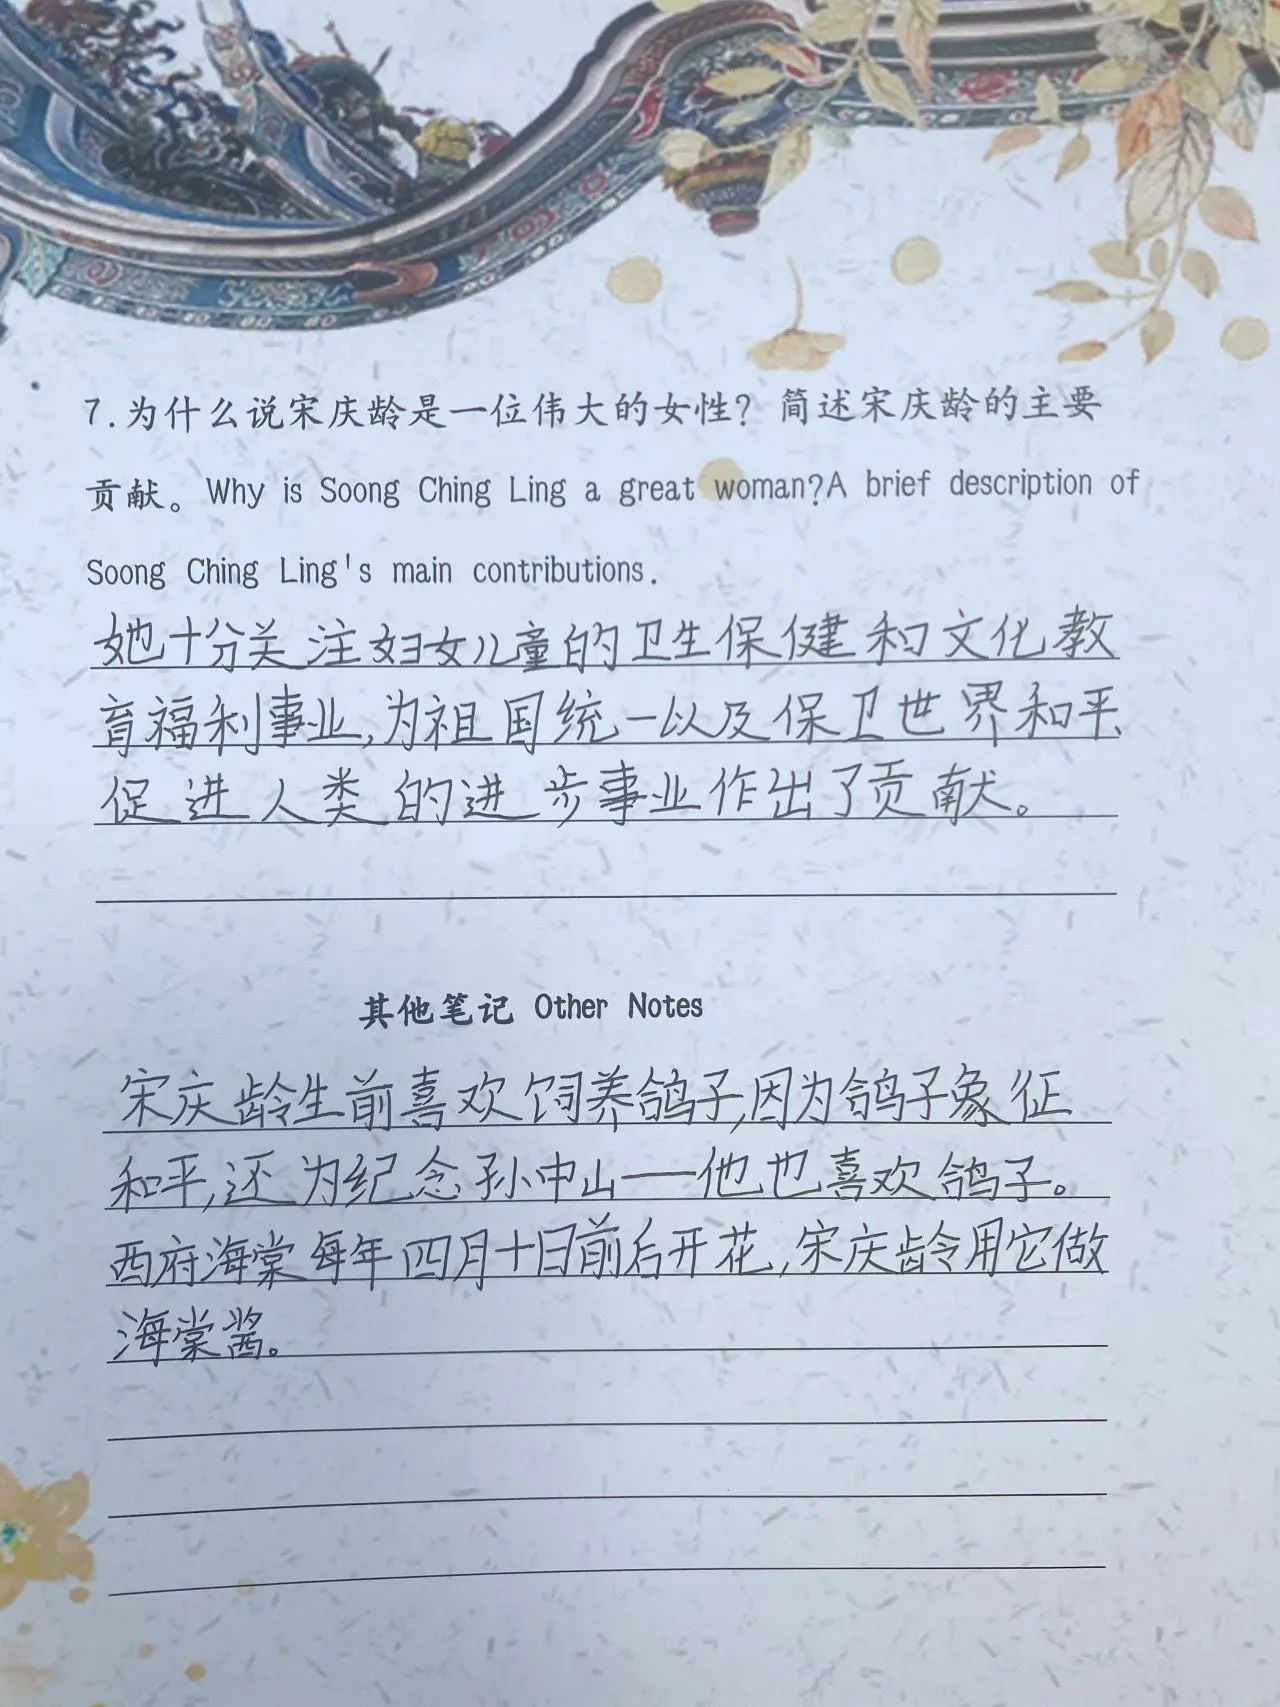 7.为什么说宋庆龄是一位伟大的女性？简述宋庆龄的主要
贡献。Why is Soong Ching Ling a great woman?A brief description of
Soong Ching Ling's main contributions.
她十分关注妇女儿童的卫生保健和文化教
育福利事业,为祖国统一以及保卫世界和平、
促进人类的进步事业作出了贡献。
其他笔记 Other Notes
宋庆龄生前喜欢饲养鸽子,因为鸽子象征
和平,还为纪念孙中山——他也喜欢鸽子。
西府海棠每年四月十日前后开花,宋庆龄用它做
海棠酱。